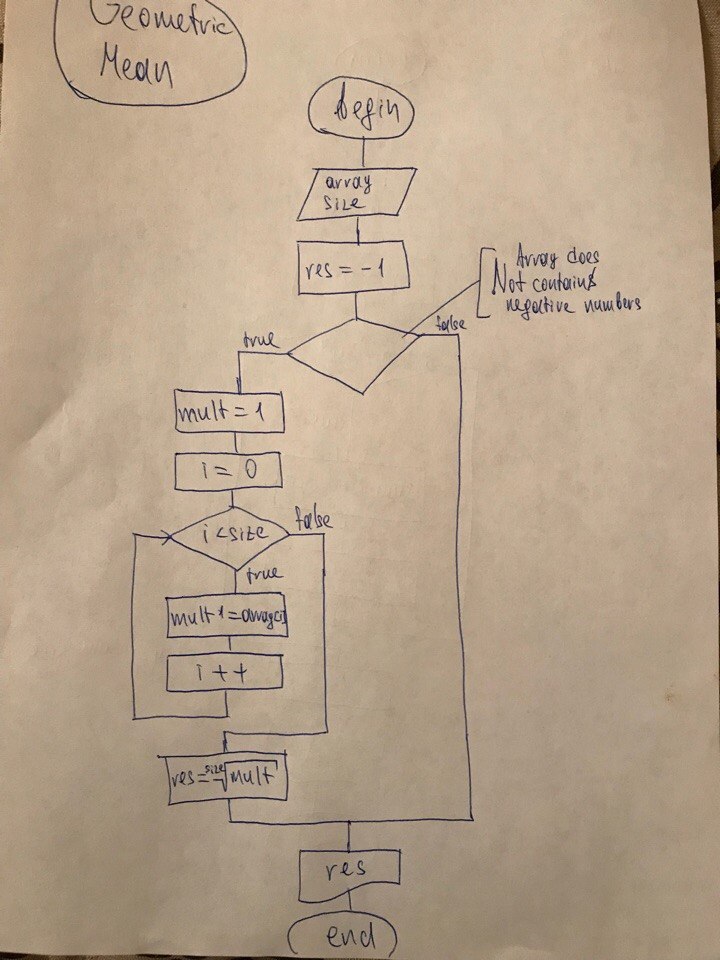 Geometric
Mean
begin
array
size
res = -1
Array does
Not contains
negative numbers
true
false
mult = 1
i = 0
i < size
false
true
i++
res = size√mult
res
end